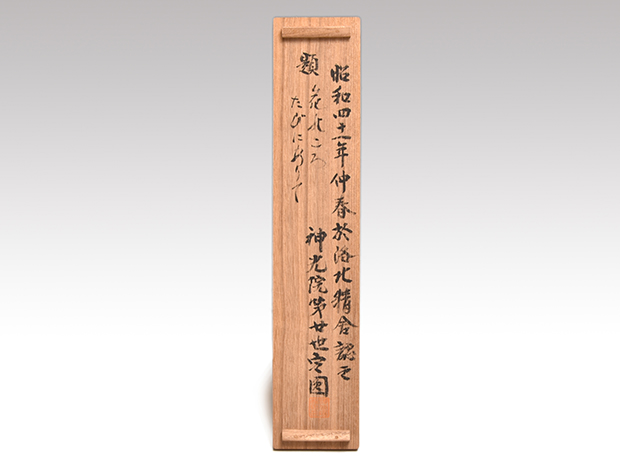 昭和四十一年仲春於洛北精舎認之
神光院第廿世
題
花のころ
たびにありて